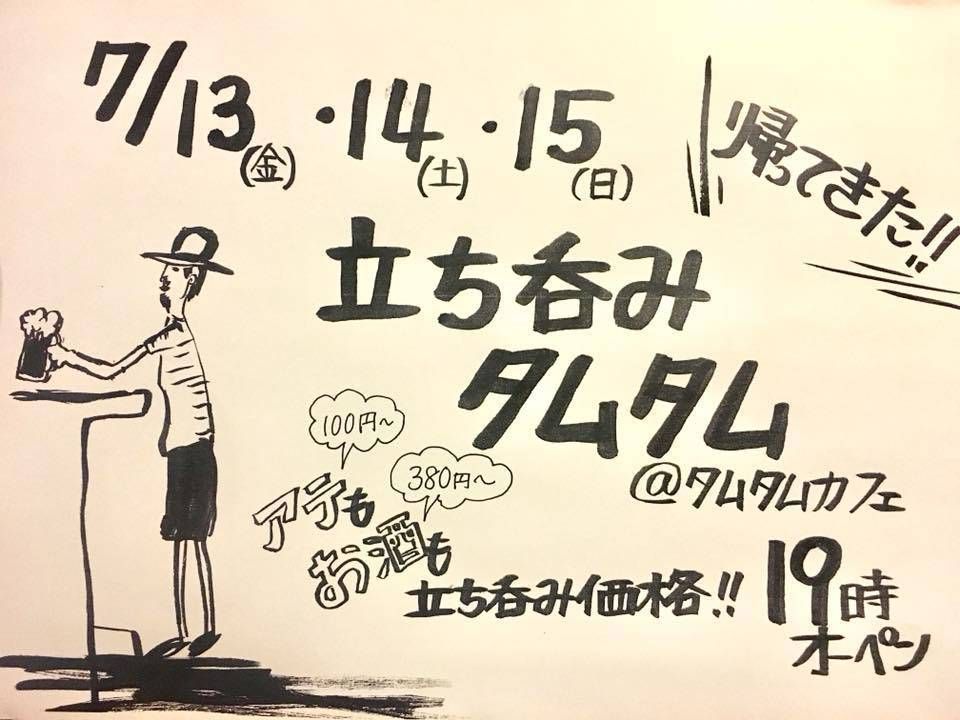 7/13(金)・14(土)・15(日)
帰ってきた!!
立ち呑み
タムタム
@タムタムカフェ
100円~
アテも
380円~
お酒も
立ち呑み価格!!
19時
オープン